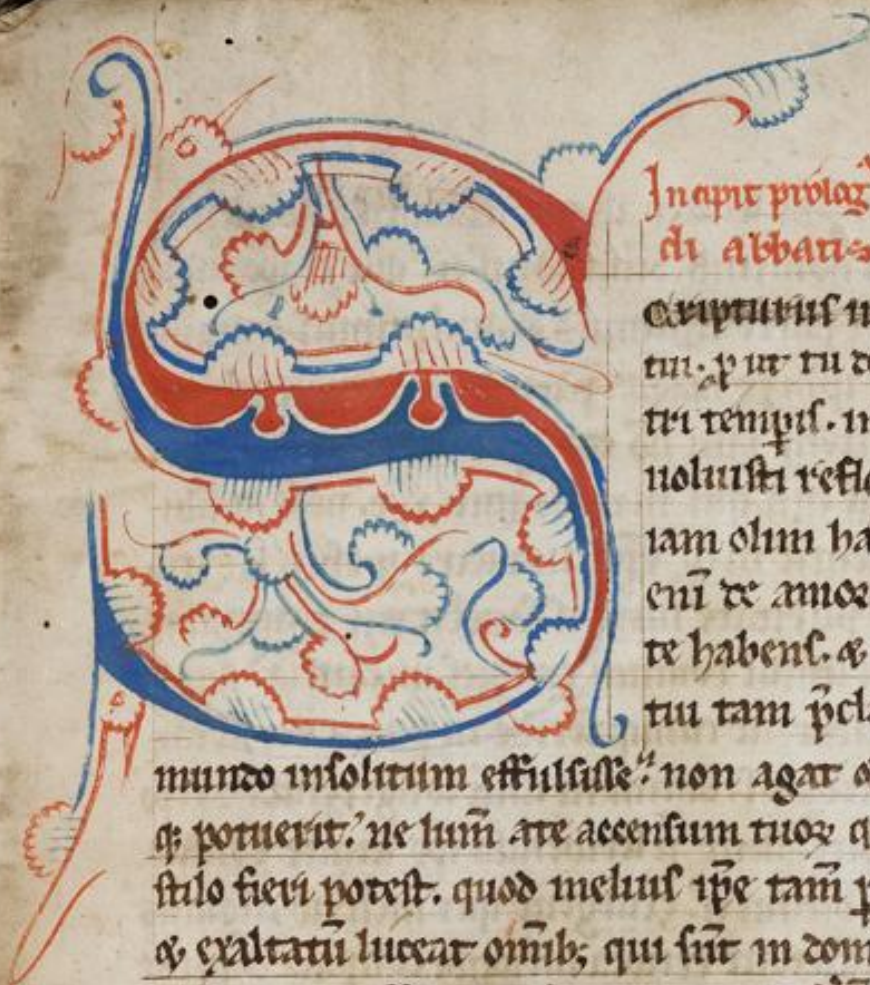 Incipit prolog
di abbatis
S
cripturus
tui. ꝓ ut tu
tri temꝑis. in
uoluisti reflo
iam olim ha
eni̅ de amor
te habens. &
tui tam p̅cla
mundo insolitum effulsisse. non agat
q; potuerit. ne lum̅ a te accensum tuoꝝ q
stilo fieri potest. quod melius ip̅e tam̅ p
& exaltatu̅ luceat om̅ib; qui su̅t in dom